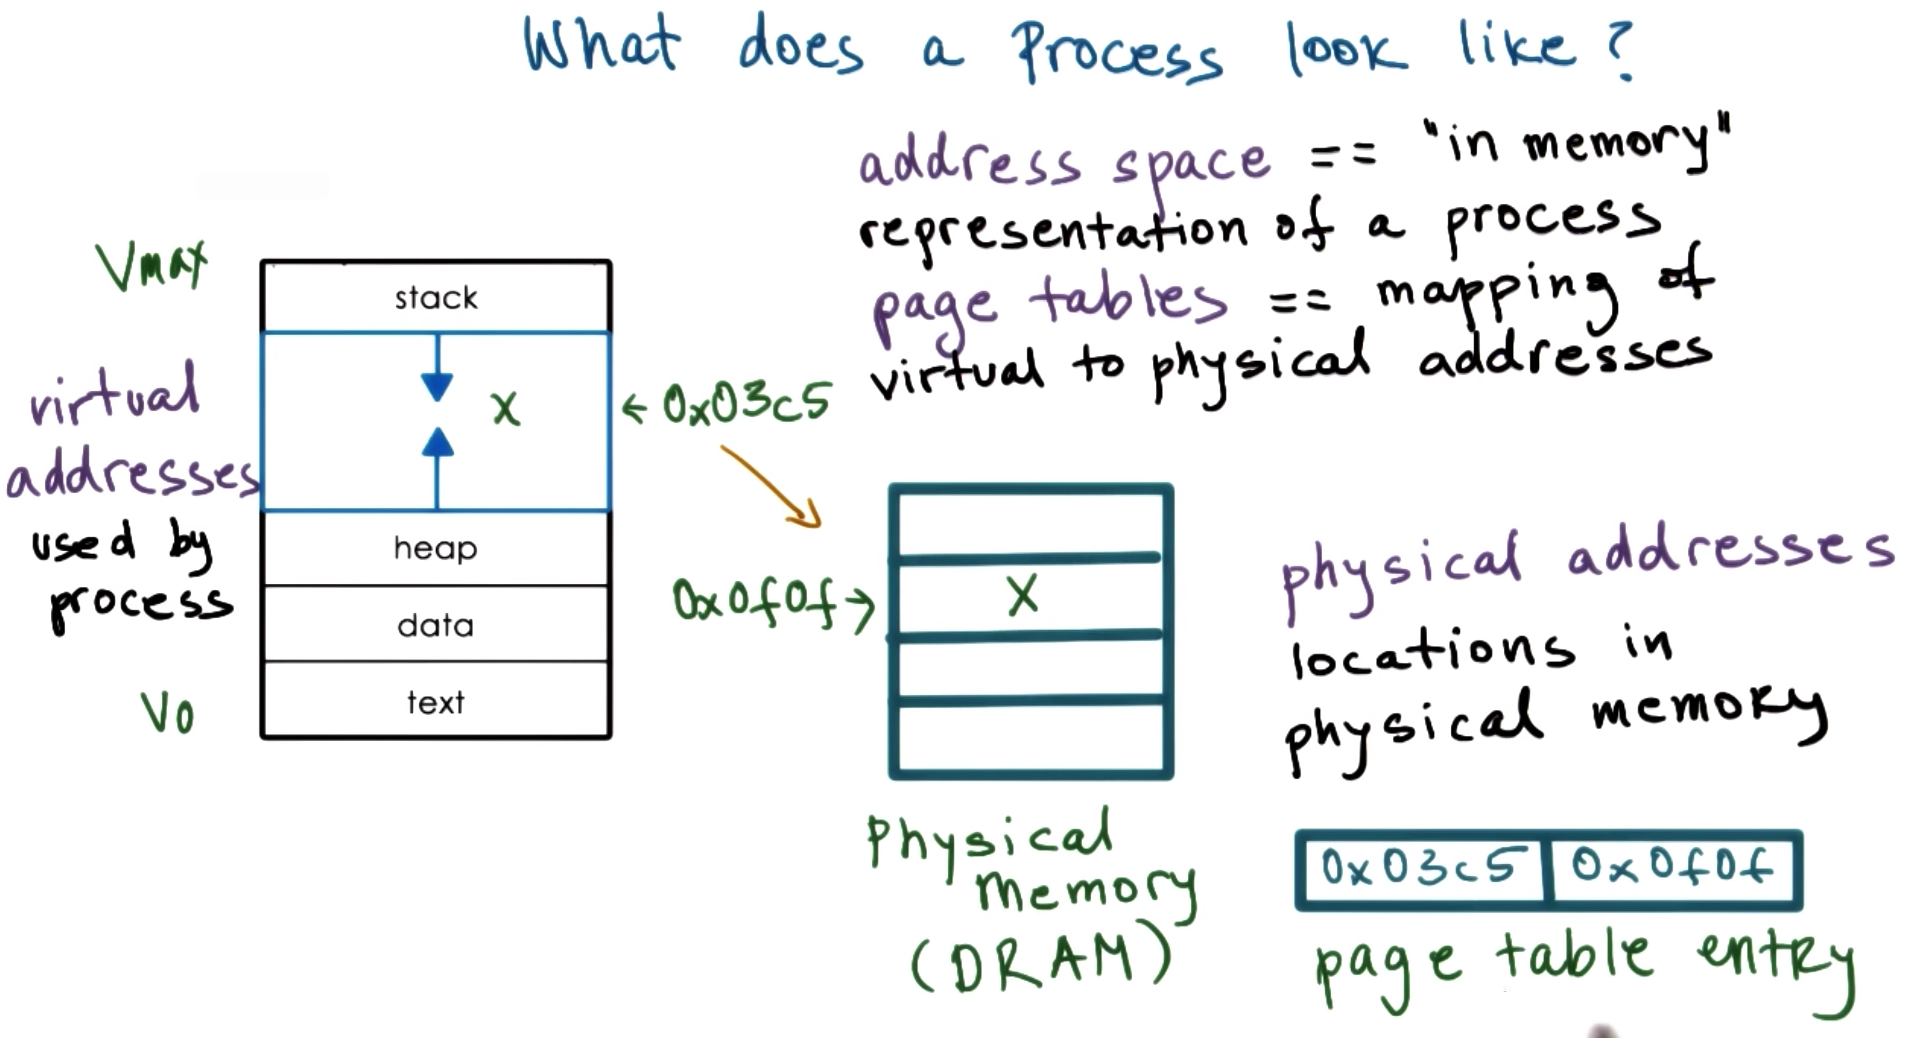 What does a Process look like?
address space == "in memory"
representation of a process
page tables == mapping of
virtual to physical addresses
Vmax
virtual
addresses
used by
process
V0
stack
X
heap
data
text
← 0x03c5
0x0f0f →
X
Physical
Memory
(DRAM)
physical addresses
locations in
physical memory
0x03c5 0x0f0f
page table entry